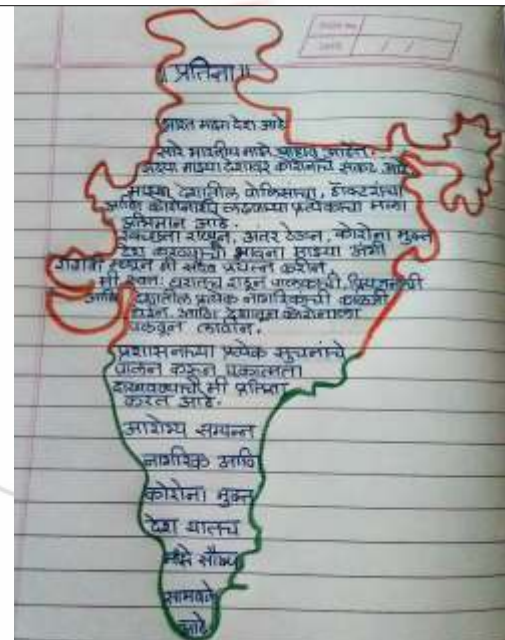 ॥ प्रतिज्ञा ॥
भारत माझा देश आहे
सारे भारतीय माझे बांधव आहेत.
सध्या माझ्या देशावर कोरोनाचे संकट आहे
माझ्या देशातील पोलिसांचा, डॉक्टरांचा
आणि कोरोनाशी लढणाऱ्या प्रत्येकाचा मला
अभिमान आहे.
स्वच्छता राखून, अंतर ठेऊन, कोरोना मुक्त
देश करण्याची भावना माझ्या अंगी
मी सदैव प्रयत्न करीन.
मी स्वतः घरातच राहून पालकांची, प्रियजनांची
आणि देशातील प्रत्येक नागरिकाची काळजी
घेईन. आणि देशातून कोरोनाला
पळवून लावीन.
प्रशासनाच्या प्रत्येक सुचनांचे
पालन करून एकात्मता
दाखवण्याची मी प्रतिज्ञा
करत आहे.
आरोग्य सम्पन्न
नागरिक आणि
कोरोना मुक्त
देश यातच
माझे सौख्य
सामावले
आहे
DATE / /